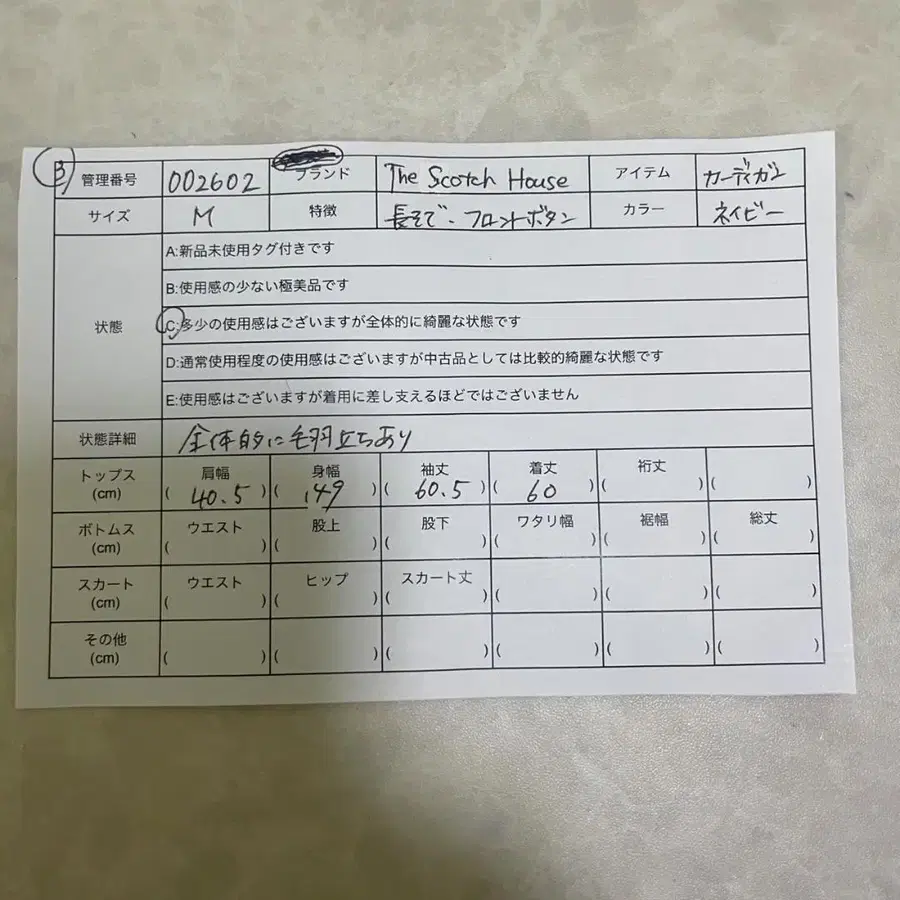 B
管理番号 002602 ブランド The Scotch House アイテム カーディガン
サイズ M 特徴 長そで・フロントボタン カラー ネイビー
状態
A:新品未使用タグ付きです
B:使用感の少ない極美品です
C:多少の使用感はございますが全体的に綺麗な状態です
D:通常使用程度の使用感はございますが中古品としては比較的綺麗な状態です
E:使用感はございますが着用に差し支えるほどではございません
状態詳細 全体的に毛羽立ちあり
トップス 肩幅 身幅 袖丈 着丈 裄丈
(cm) ( 40.5 ) ( 49 ) ( 60.5 ) ( 60 ) ( ) ( )
ボトムス ウエスト 股上 股下 ワタリ幅 裾幅 総丈
(cm) ( ) ( ) ( ) ( ) ( ) ( )
スカート ウエスト ヒップ スカート丈
(cm) ( ) ( ) ( ) ( ) ( ) ( )
その他
(cm) ( ) ( ) ( ) ( ) ( ) ( )